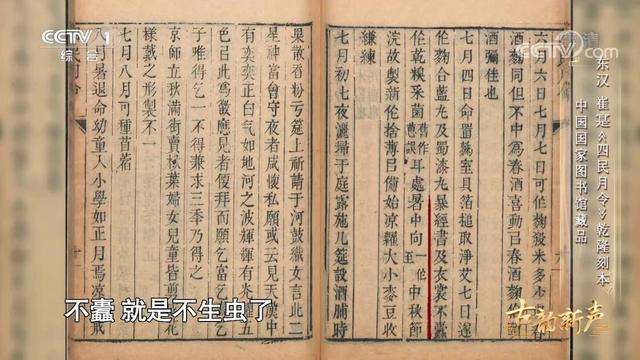 CCTV 1
综合
东汉 崔寔《四民月令》乾隆刻本
中国国家图书馆藏品
六月六日七月七日可作麴 米多少 春
酒麴同但不中為春酒喜動 春酒麴作
酒彌佳也
七月四日命置麴室具箔槌取淨艾七日遂
作麴合藍丸及蜀漆丸暴經書及衣裳不蠹
作乾糗采 耳處暑中向 一作至 中秋節
浣故製新作袷薄 備始涼糶大小麥豆收
縑練
七月初七夜灑掃于庭露施几筵設酒脯時
果散香粉 筵上祈請于河鼓織女言此二
星神當會守夜者咸懷私願或云見天漢中
有奕奕正白气如地河之波輝輝有光曜五
色 此為徵應見者 拜而願乞富乞壽乞
子唯得乞一不得兼求三季乃得
京師立秋滿街賣楸葉婦女兒童皆剪
樣戴之形製不一
七月八月可種苜蓿
八月暑退命幼童入小學如正月焉涼
不蠹 就是不生虫了
古韵新声